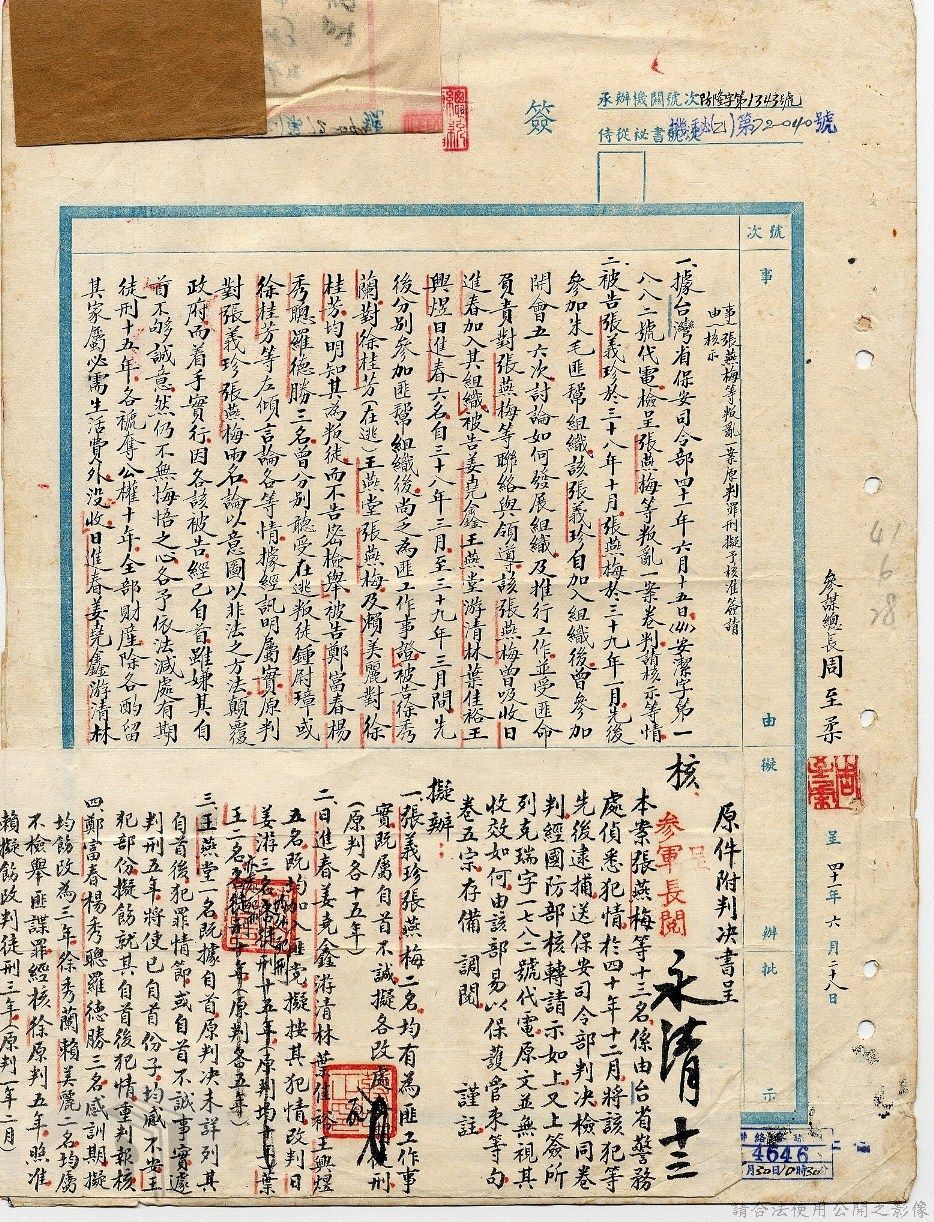 簽
承辦機關號次防隆字第1343號
侍從祕書號次機秘(乙)第72-040號
號次
事由
擬辦
批示
參謀總長周至柔
呈 四十一年六月二十八日
41
6
28
事由 張燕梅等叛亂一案原判罪刑擬予核准簽請核示
一、據台灣省保安司令部四十一年六月十五日(41)安潔字第一
八八二號代電檢呈張燕梅等叛亂一案卷判請核示等情
二、被告張義珍於三十八年十月張燕梅於三十九年一月先後
參加朱毛匪幫組織該張義珍自加入組織後曾參加
開會五六次討論如何發展組織及推行工作並受匪命
負責對張燕梅等聯絡與領導該張燕梅曾吸收日
進春加入其組織被告姜堯鑫王燕堂游清林葉佳裕王
興煜日進春六名自三十八年三月至三十九年三月間先
後分別參加匪幫組織後尚乏為匪工作事證被告徐秀
蘭對徐桂芳(在逃)王燕堂張燕梅及賴美麗對徐
桂芳均明知其為叛徒而不告密檢舉被告鄭富春楊
秀聰羅德勝三名曾分別聽受在逃叛徒鍾尉璋或
徐桂芳等左傾言論各等情據經訊明屬實原判
對張義珍張燕梅兩名論以意圖以非法之方法顛覆
政府而着手實行因各該被告經已自首雖嫌其自
首不夠誠意然仍不無悔悟之心各予依法減處有期
徒刑十五年各褫奪公權十年全部財產除各酌留
其家屬必需生活費外沒收日進春姜堯鑫游清林
原件附判決書呈
核
參軍長閱
呈
永清 十三
本案張燕梅等十三名係由台省警務
處偵悉犯情於四十年十二月將該犯等
先後逮捕送保安司令部判決檢同卷
判經國防部核轉請示如上又上簽所
列克瑞字一七八二號代電原文並無視其
收效如何由該部易以保護管束等句
卷五宗存備 調閱 謹註
擬辦:
一張義珍張燕梅二名均有為匪工作事
實既屬自首不誠擬各改處徒刑
(原判各十五年)
二日進春姜堯鑫游清林葉佳裕王興煜
五名既均加入匪黨擬按其犯情改判日
姜游三名各徒刑十五年(原判均十年)葉
王二名各徒刑十年(原判各五年)
三王燕堂一名既據自首原判決未詳列其
自首後犯罪情節或自首不誠事實遽
判刑五年將使已自首份子均感不安王
犯部份擬飭就其自首後犯情事判報核
四鄭富春楊秀聰羅德勝三名感訓期擬
均飭改為三年徐秀蘭賴美麗二名均屬
不檢舉匪諜罪經核徐原判五年照准
賴擬飭改判徒刑三年(原判一年一月)
4646
月30日10時30分
請合法使用公開之影像